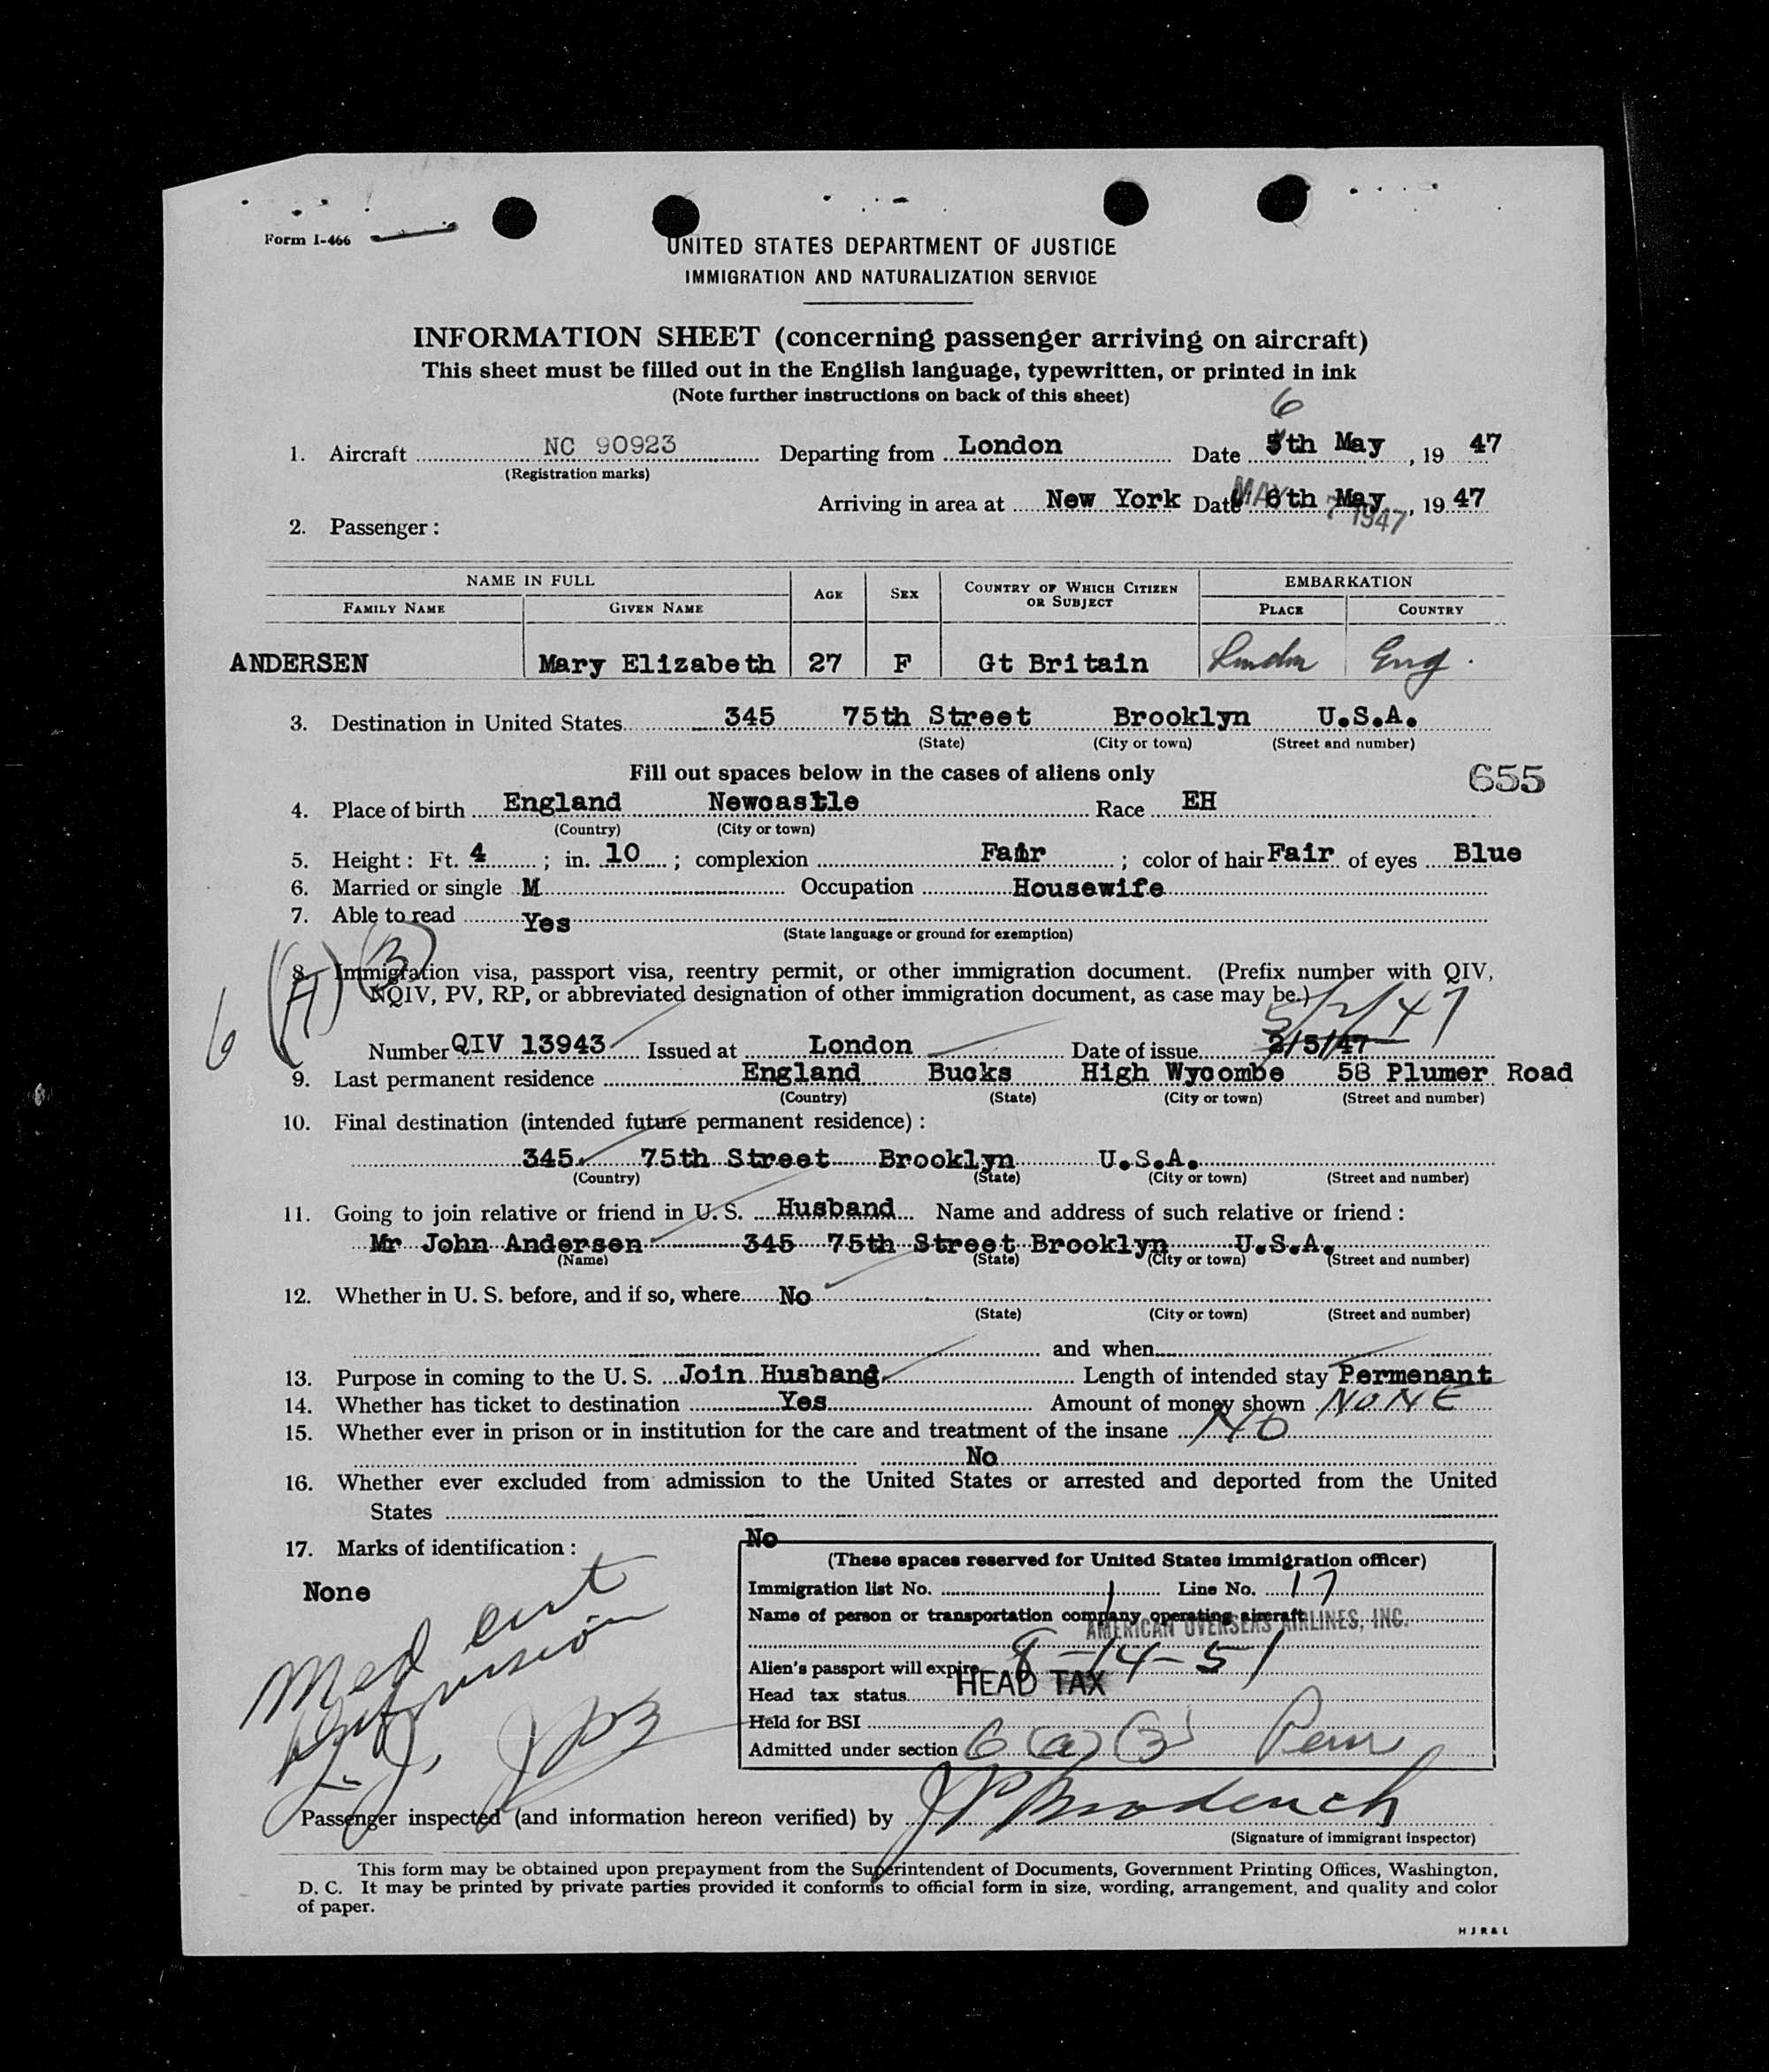 Form I-466
UNITED STATES DEPARTMENT OF JUSTICE
IMMIGRATION AND NATURALIZATION SERVICE
INFORMATION SHEET (concerning passenger arriving on aircraft)
This sheet must be filled out in the English language, typewritten, or printed in ink
(Note further instructions on back of this sheet)
6
1. Aircraft NC 90923 Departing from London Date 5th May, 19 47
(Registration marks)
Arriving in area at New York Date 6th May, 19 47
MAY 7 1947
2. Passenger:
NAME IN FULL AGE SEX COUNTRY OF WHICH CITIZEN OR SUBJECT EMBARKATION
FAMILY NAME GIVEN NAME PLACE COUNTRY
ANDERSEN Mary Elizabeth 27 F Gt Britain London Eng.
3. Destination in United States 345 75th Street Brooklyn U.S.A.
(State) (City or town) (Street and number)
Fill out spaces below in the cases of aliens only 655
4. Place of birth England Newcastle Race EH
(Country) (City or town)
5. Height: Ft. 4; in. 10; complexion Fair; color of hair Fair of eyes Blue
6. Married or single M Occupation Housewife
7. Able to read Yes
(State language or ground for exemption)
6 (A) (3)
8. Immigration visa, passport visa, reentry permit, or other immigration document. (Prefix number with QIV,
NQIV, PV, RP, or abbreviated designation of other immigration document, as case may be.)
5/2/47
Number QIV 13943 Issued at London Date of issue 2/5/47
9. Last permanent residence England Bucks High Wycombe 58 Plumer Road
(Country) (State) (City or town) (Street and number)
10. Final destination (intended future permanent residence):
345 75th Street Brooklyn U.S.A.
(Country) (State) (City or town) (Street and number)
11. Going to join relative or friend in U. S. Husband Name and address of such relative or friend:
Mr John Andersen 345 75th Street Brooklyn U.S.A.
(Name) (State) (City or town) (Street and number)
12. Whether in U. S. before, and if so, where No
(State) (City or town) (Street and number)
and when
13. Purpose in coming to the U. S. Join Husband Length of intended stay Permenant
14. Whether has ticket to destination Yes Amount of money shown NONE
15. Whether ever in prison or in institution for the care and treatment of the insane NO
No
16. Whether ever excluded from admission to the United States or arrested and deported from the United
States
No
17. Marks of identification:
None
Med cert
(These spaces reserved for United States immigration officer)
Immigration list No. 1 Line No. 17
Name of person or transportation company operating aircraft
AMERICAN OVERSEAS AIRLINES, INC.
Alien's passport will expire 8-14-51
Head tax status HEAD TAX
Held for BSI
Admitted under section 6 (a) (3) Perm
Passenger inspected (and information hereon verified) by
(Signature of immigrant inspector)
This form may be obtained upon prepayment from the Superintendent of Documents, Government Printing Offices, Washington,
D. C. It may be printed by private parties provided it conforms to official form in size, wording, arrangement, and quality and color
of paper.
H J R & L